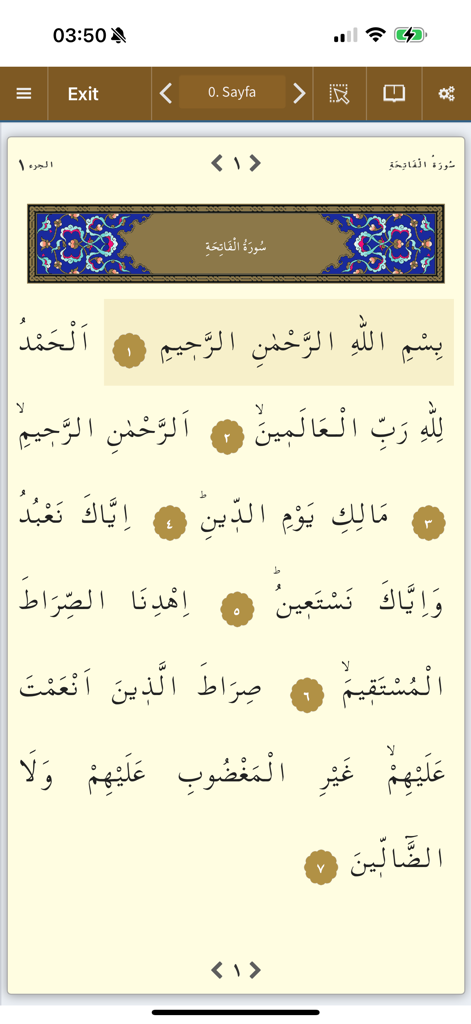 03:50
Exit
0. Sayfa
سُورَةُ الْفَاتِحَةِ
١
الجزء ١
سُورَةُ الْفَاتِحَةِ
بِسْمِ اللّٰهِ الرَّحْمٰنِ الرَّح۪يمِ ١ اَلْحَمْدُ
لِلّٰهِ رَبِّ الْعَالَم۪ينَۙ ٢ اَلرَّحْمٰنِ الرَّح۪يمِۙ
٣ مَالِكِ يَوْمِ الدّ۪ينِۜ ٤ اِيَّاكَ نَعْبُدُ
وَاِيَّاكَ نَسْتَع۪ينُۜ ٥ اِهْدِنَا الصِّرَاطَ
الْمُسْتَق۪يمَۙ ٦ صِرَاطَ الَّذ۪ينَ اَنْعَمْتَ
عَلَيْهِمْۙ غَيْرِ الْمَغْضُوبِ عَلَيْهِمْ وَلَا
الضَّٓالّ۪ينَ ٧
١